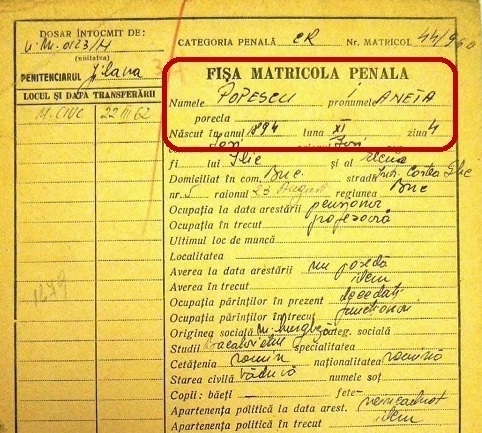 DOSAR ÎNTOCMIT DE:
U.M. 0123/H
(unitatea)
PENITENCIARUL Jilava
LOCUL ȘI DATA TRANSFERĂRII
M. CIUC 22 III 62
1279
CATEGORIA PENALĂ CR Nr. MATRICOL 44/960
FIȘA MATRICOLA PENALA
Numele POPESCU pronumele ANETA
porecla
Născut în anul 1894 luna XI ziua 4
Iași Iași
fi lui Ilie și al Elena
Domiciliat în com. Buc. strada Intr. Costea Ilie
nr. 5 raionul 23 August regiunea Buc
Ocupația la data arestării pensionară
Ocupația în trecut profesoară
Ultimul loc de muncă
Localitatea
Averea la data arestării nu posedă
Averea în trecut idem
Ocupația părinților în prezent decedați
Ocupația părinților în trecut funcționari
Originea socială M. burgheză teg. socială
Studii Bacalaureat specialitatea
Cetățenia română naționalitatea română
Starea civilă văduvă numele soț
Copii: băeți - fete -
Apartenența politică la data arest. neincadrat
Apartenența politică în trecut idem